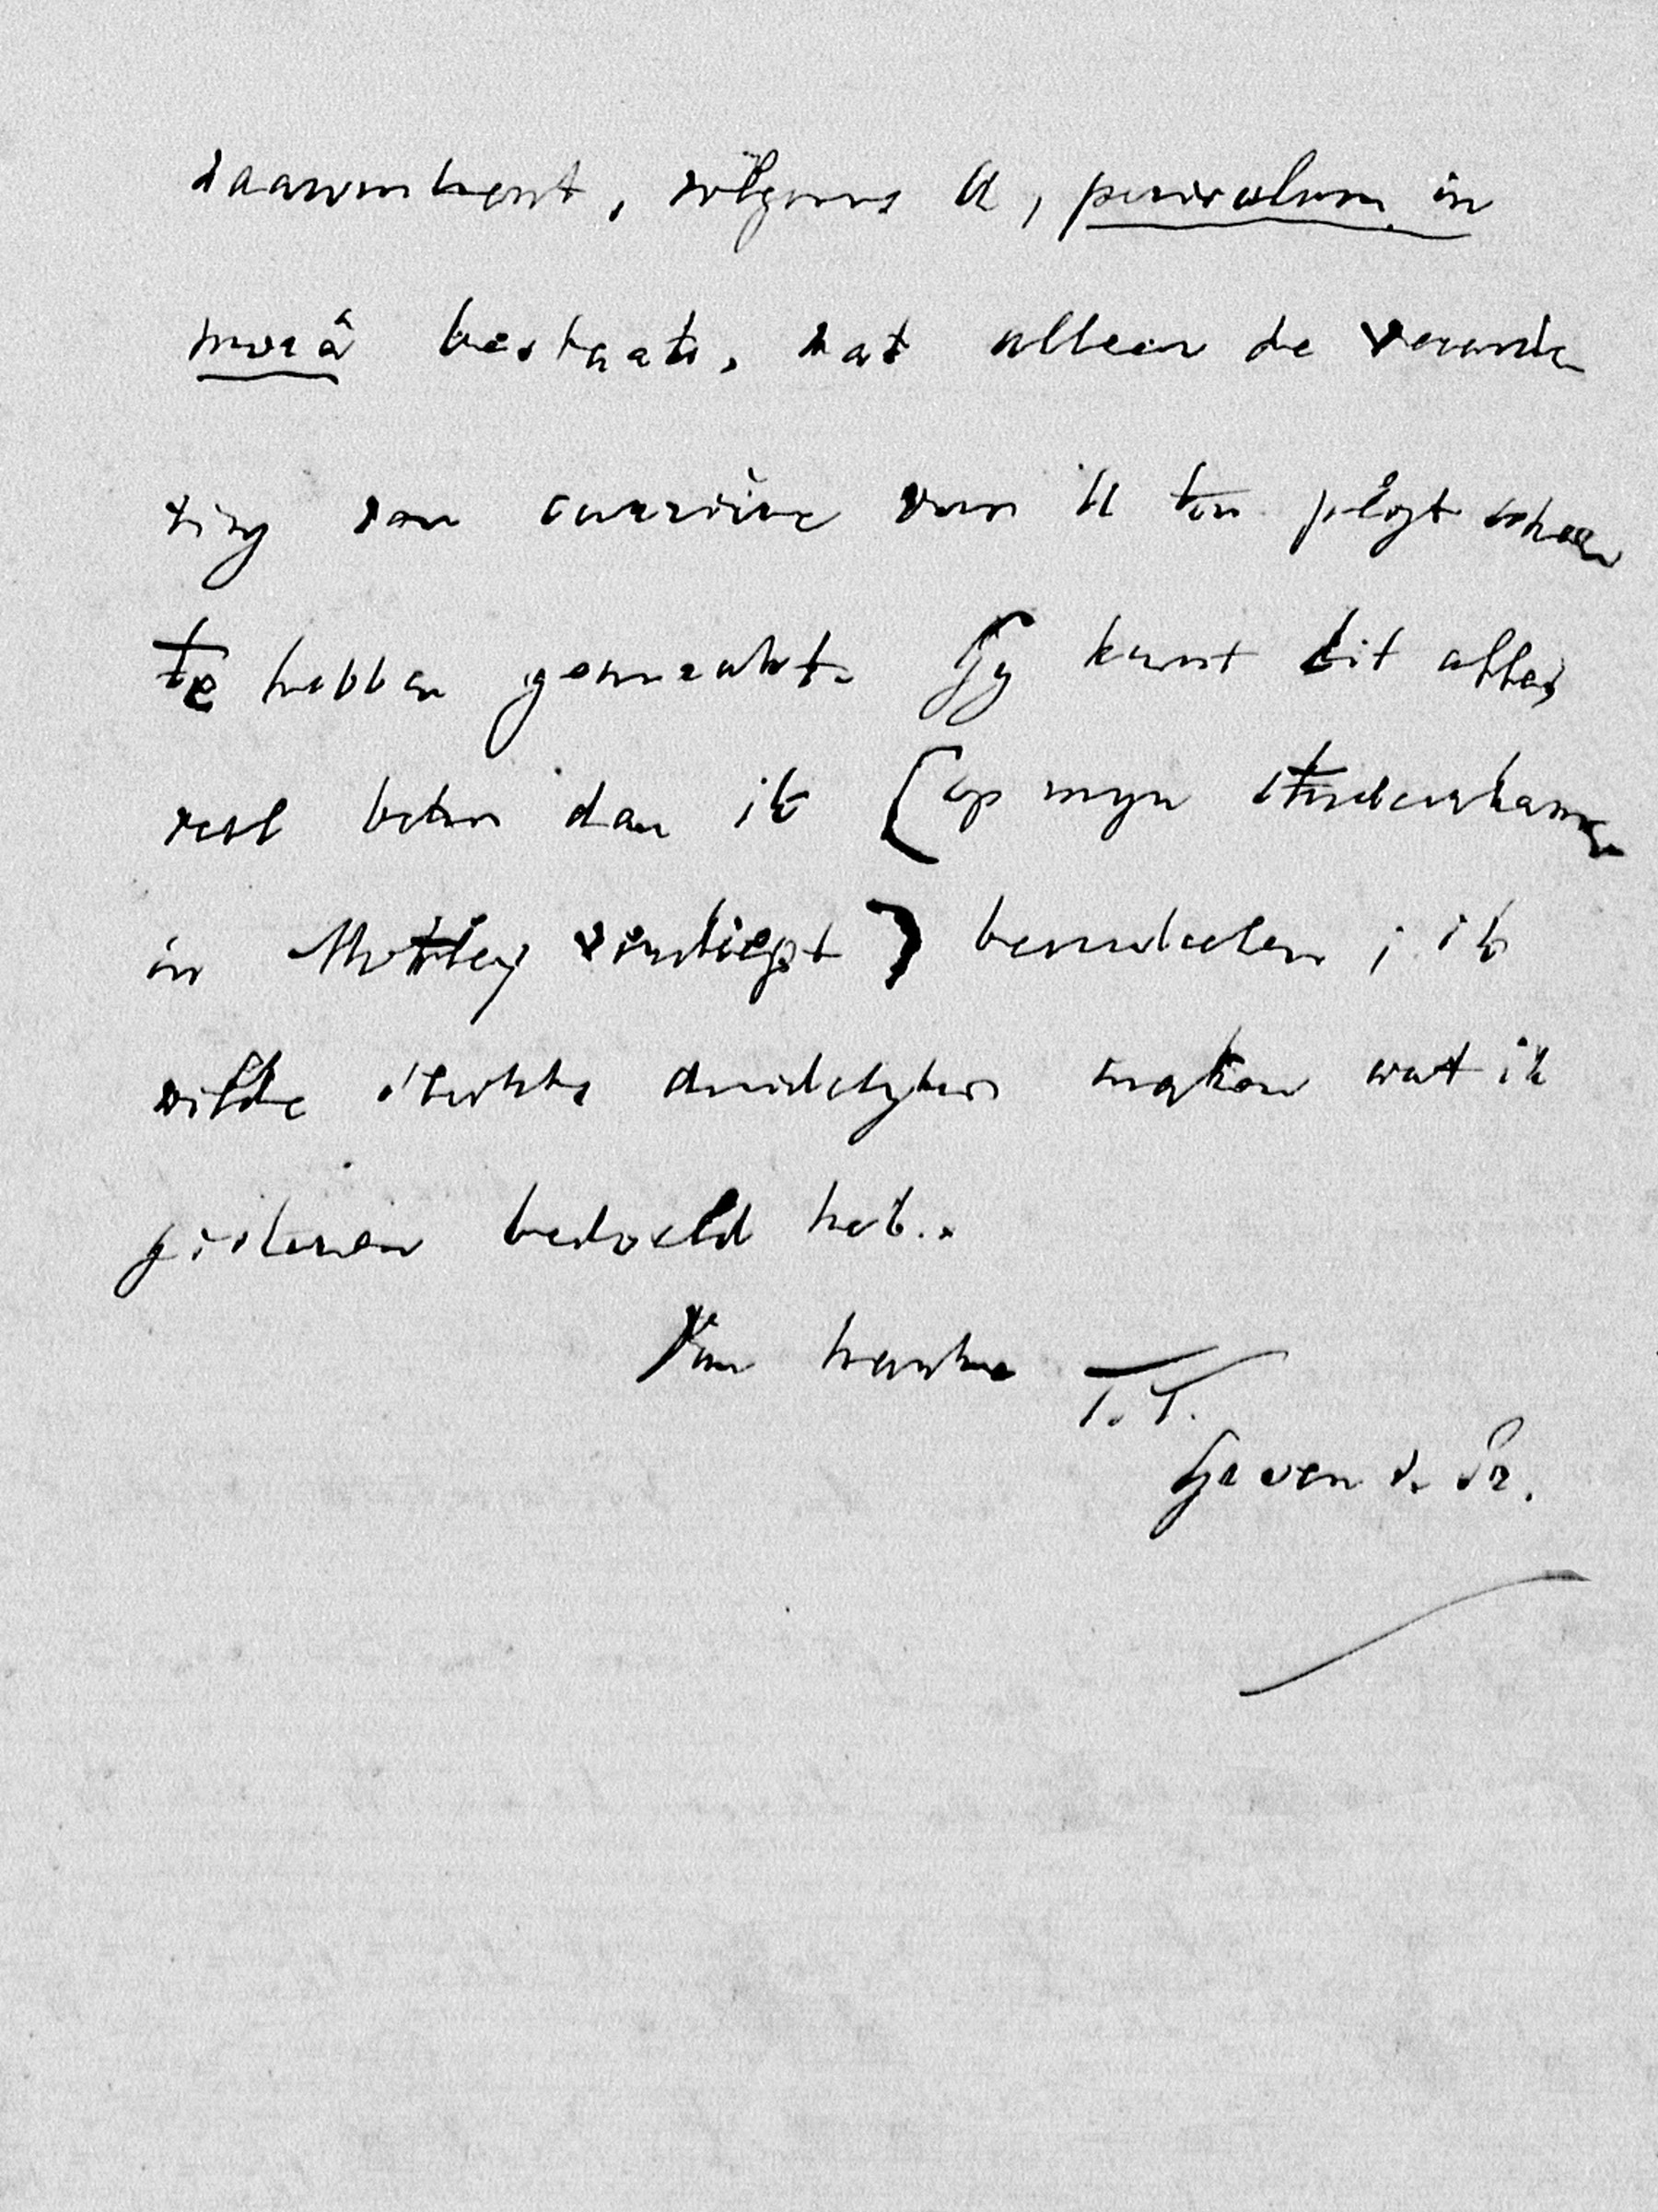 daaromtrent, volgens U, periculum in
morâ bestaat, dat alleen de verande
ring van carrière van U ten pligt scheen
te hebben gemaakt. Gy kunt dit alles
veel beter dan ik (op myn studeerkamer
in Motley verdiept) beoordeelen; ik
wilde slechts duidelyker maken wat ik
gisteren bedoeld heb.
Van harte T.T.
Groen v. Pr.